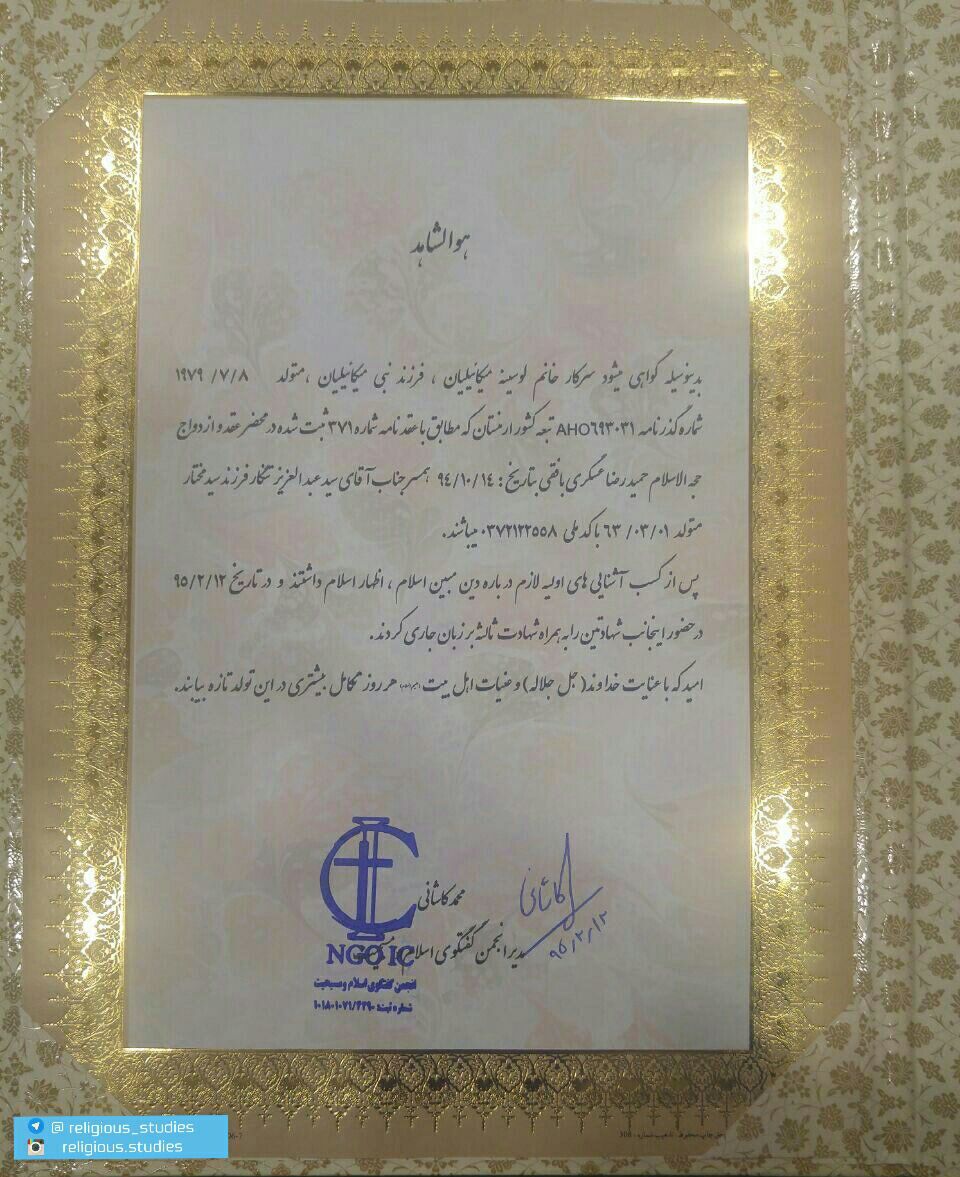 هوالشاهد
بدینوسیله گواهی میشود سرکار خانم لوسینه میکائیلیان ، فرزند نبی میکائیلیان ،متولد ۱۹۷۹/۷/۸
شماره گذرنامه AHO۶۹۳۰۳۱ تبعه کشور ارمنستان که مطابق با عقدنامه شماره ۳۷۱ ثبت شده در محضر عقد و ازدواج
حجه الاسلام حمیدرضا عسگری بافقی بتاریخ : ۹۴/۱۰/۱۴ همسر جناب آقای سید عبدالعزیز تنکار فرزند سید مختار
متولد ۶۳/۰۳/۰۱ با کد ملی ۰۳۷۲۱۲۲۵۵۸ میباشند.
پس از کسب آشنایی های اولیه لازم درباره دین مبین اسلام ، اظهار اسلام داشتند و در تاریخ ۹۵/۲/۱۲
درحضور اینجانب شهادتین را به همراه شهادت ثالثه بر زبان جاری کردند .
امید که با عنایت خداوند(جل جلاله) و عنیات اهل بیت هر روز تکامل بیشتری در این تولد تازه بیابند.
کاشانی
۹۵/۲/۱۲
محمد کاشانی
مدیر انجمن گفتگوی اسلام
NGO IC
انجمن گفتگوی اسلام و مسیحیت
شماره ثبت: ۱۰۱۸۰۱۰۷۱/۴۴۹۰
@ religious_studies
religious.studies